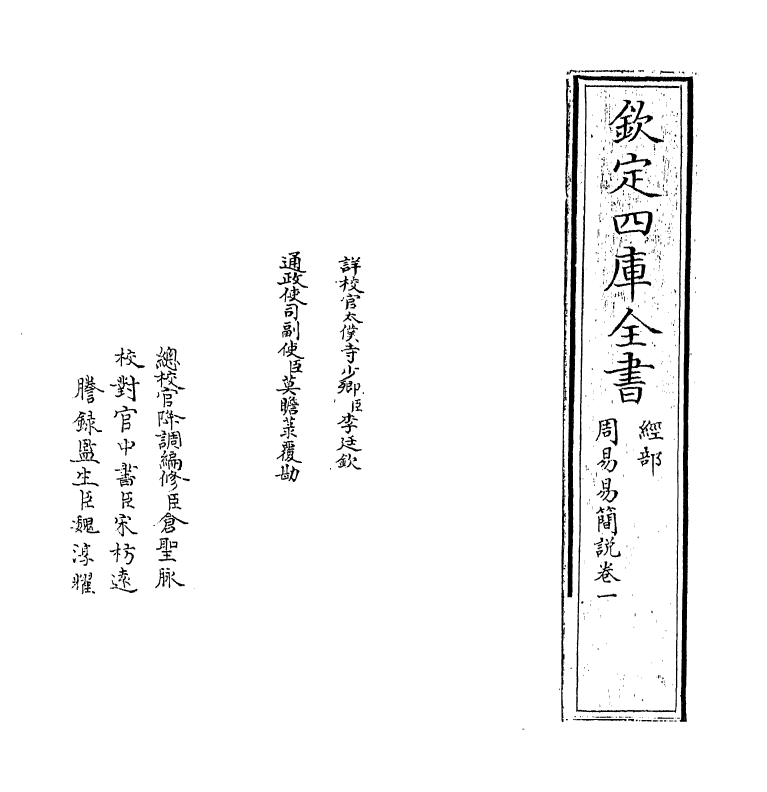 欽定四庫全書
經部
周易易簡説卷一
詳校官太僕寺少卿臣李廷欽
通政使司副使臣莫瞻菉覆勘
總校官降調編修臣倉聖脉
校對官中書臣宋枋遠
謄録監生臣魏淳耀